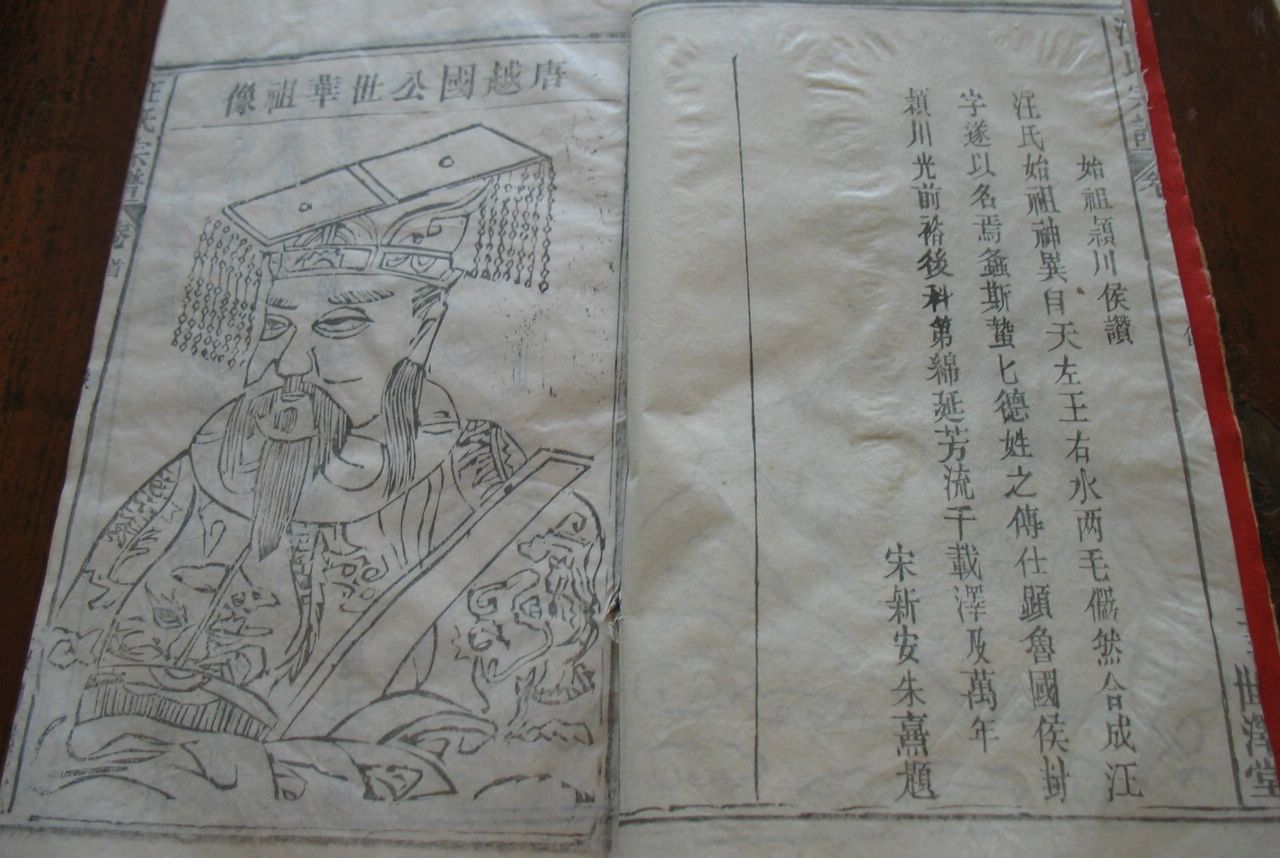 始祖潁川侯讚
汪氏始祖神異自天左王右水两毛儼然合成汪
字遂以名焉螽斯蟄匕德姓之傳仕顕魯國侯封
頴川光前裕後科第綿延芳流千載澤及萬年
宋新安朱熹題
世澤堂
唐越國公世華祖像
汪氏宗譜
卷首